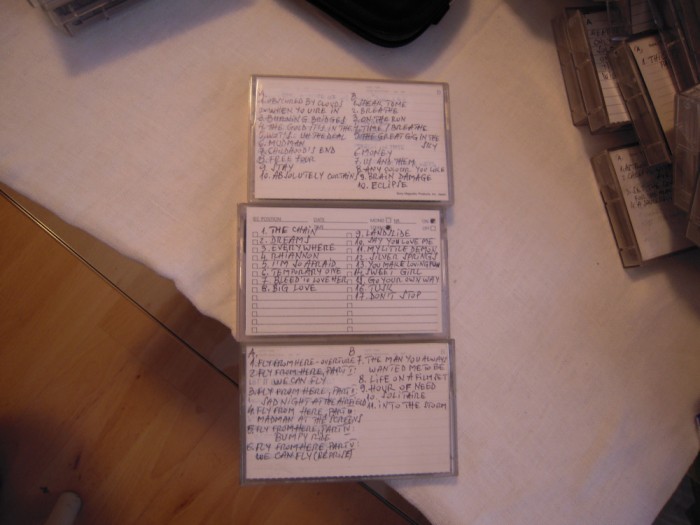 A B
1. OBSCURED BY CLOUDS
2. WHEN YOU'RE IN
3. BURNING BRIDGES
4. THE GOLD IT'S IN THE
5. WOTS: UH THE DEAL
6. MUDMAN
7. CHILDHOOD'S END
8. FREE FOUR
9. STAY
10. ABSOLUTELY CURTAINS
1. SPEAK TO ME
2. BREATHE
3. ON THE RUN
4. TIME / BREATHE
GREAT GIG IN THE
SKY
6. MONEY
7. US AND THEM
8. ANY COLOUR YOU LIKE
9. BRAIN DAMAGE
10. ECLIPSE
DATE
1. THE CHAIN
2. DREAMS
3. EVERYWHERE
4. RHIANNON
5. I'M SO AFRAID
6. TEMPORARY ONE
7. BLEED TO LOVE HER
8. BIG LOVE
9. LANDSLIDE
10. SAY YOU LOVE ME
11. MY LITTLE DEMON
12. SILVER SPRINGS
13. YOU MAKE LOVING FUN
14. SWEET GIRL
15. GO YOUR OWN WAY
16. TUSK
17. DON'T STOP
A. B
1. FLY FROM HERE - OVERTURE
2. FLY FROM HERE, PART I:
WE CAN FLY
3. FLY FROM HERE, PART II:
SAD NIGHT AT THE AIRFIELD
4. FLY FROM HERE PART III
MADMAN AT THE SCREENS
5. FLY FROM HERE, PART IV:
BUMPY RIDE
6. FLY FROM HERE PART V:
WE CAN FLY (REPRISE)
7. THE MAN YOU ALWAYS
WANTED ME TO BE
8. LIFE ON A FILM SET
9. HOUR OF NEED
10. SOLITAIRE
11. INTO THE STORM